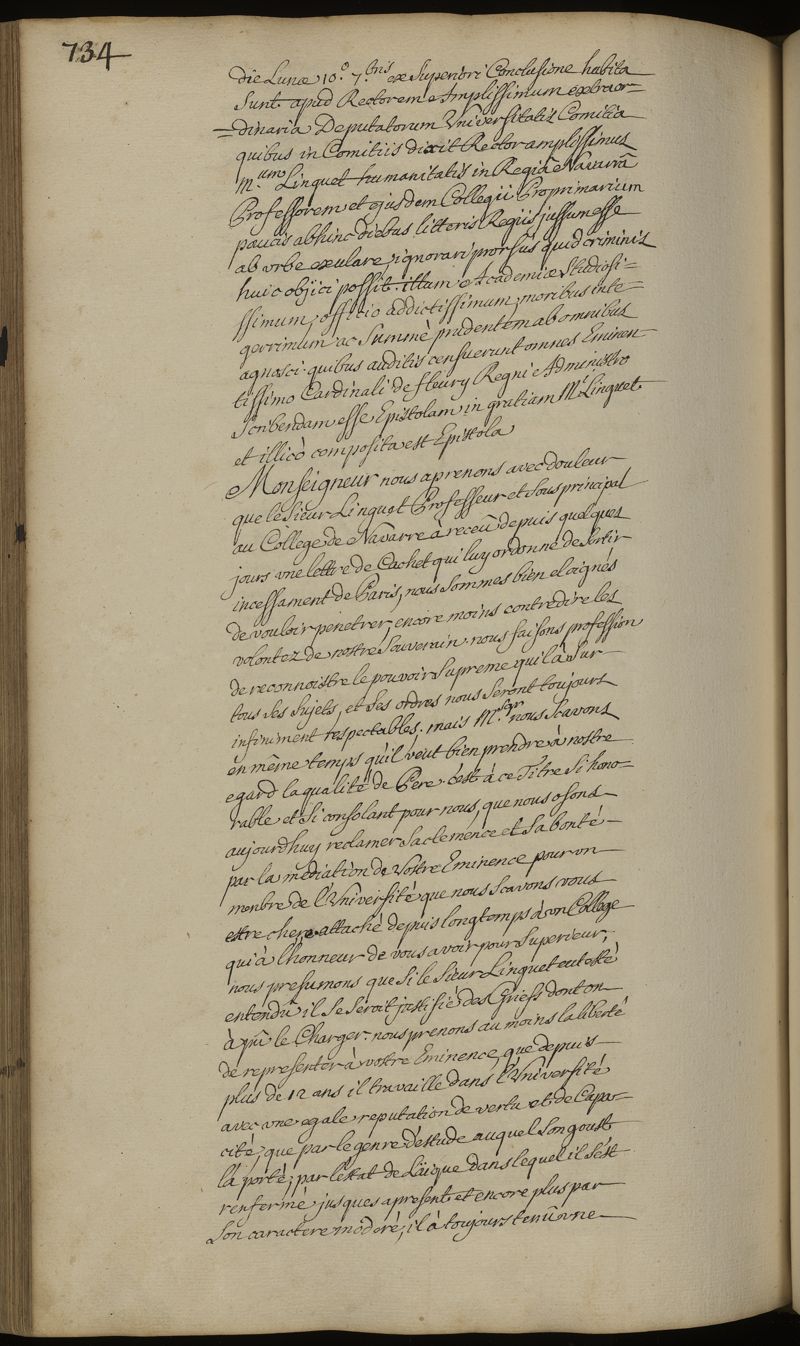 734
die Lunæ 10.º 7.bris ex Superiori Conclusione habita
Sunt apud Rectorem Amplissimum extraor=
=dinaria Deputatorum Universitatis Comitia
quibus in Comitiis dixit Rector amplissimus
M.um Linguet humanitatis in Regiâ Navarrâ
Professorem et ejusdem Collegii Proprimarium
paucis abhinc diebus litteris Regiis jussum esse
ab urbe exulare, ignorari prorsùs quid criminis
huic objici possit. illum Academiæ Studiosi=
ssimum, officio addictissimum, moribus inte=
gerrimum ac Summè prudentem ab omnibus
agnosci. quibus auditis censuerunt omnes Eminen
tissimo Cardinali de fleury Regni Administro
Scribendam esse Epistolam in gratiam M.i Linguet
et illicò composita est Epistola
Monseigneur nous aprenons avec douleur
que le Sieur Linguet Professeur et Sous principal
au College de Navarre à receû depuis quelques
jours une lettre de Cachet qui luy ordonne de Sortir
incessament de Paris, nous Sommes bien eloignés
de vouloir penetrer, encore moins contredire les
volontez de nostre Souverain. nous faisons profession
de reconnoistre le pouvoir Supreme qu'il à Sur
tous Ses Sujets, et Ses ordres nous Seront toujours
infiniment respectables. mais M.sgr nous Scavons
en même temps qu'il veut bien prendre à nostre
egard la qualité de Pere. c'est à ce Titre Si hono=
rable et Si consolant pour nous, que nous osons
aujourdhuy reclamer Sa clemence et Sa bonté
par la médiation de Vostre Eminence pour un
menbre de l'Université que nous Scavons vous
estre chere attaché depuis longtemps à un College
qui à l'honneur de vous avoir pour Superieur,
nous presumons que Si le Sieur Linguet eut esté
entendû il Se Seroit justifié des Griefs dont on
à pû le Charger. nous prenons au moins la liberté
de representer à vostre Eminence, que depuis
plus de 12 ans il travaille dans l'Université
avec une egale reputation de vertu et de Capa=
cité, que par le genre d'estude auquel Son goust
l'à porté, par l'estat de Laïque dans lequel il S'est
renfermé jusques apresent et encore plus par
Son caractere modéré, il à toujours tenû une